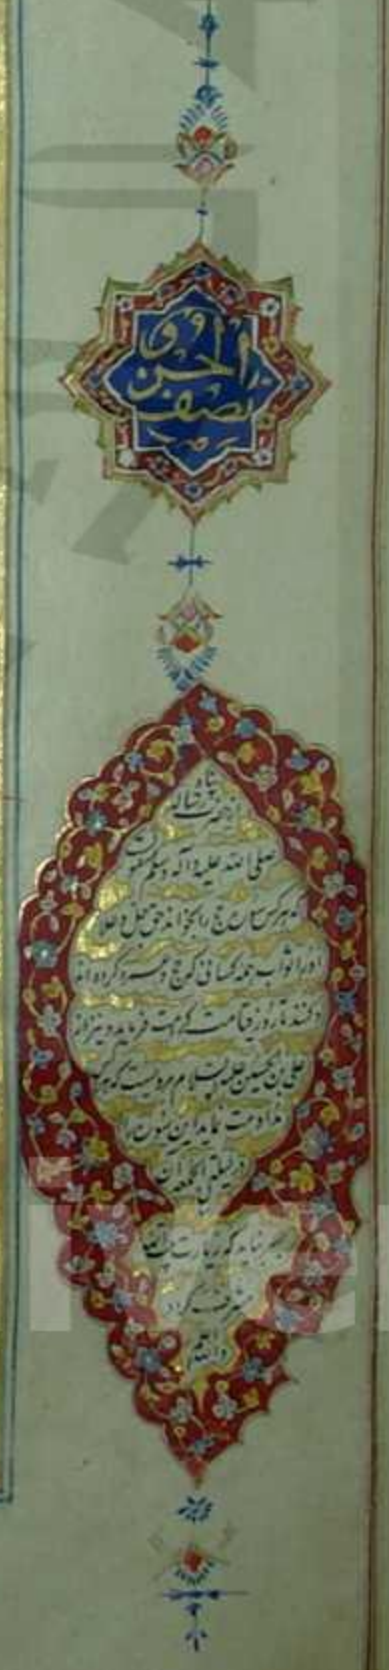 نصف
الحزب
از حضرت رسالت پناه
صلی الله علیه و آله وسلم منقول
که هرکس سوره حج را بخواند حق جل و علا
او را ثواب همه کسانی که حج و عمره کرده اند
و کنند تا روز قیامت کرامت فرماید و نیز از
علی بن الحسین علیه السلام مرویست که هرکه
مداومت نماید این سوره
در لیلتی الجمعه آن
که زیارت
مشرف گردد
والله اعلم